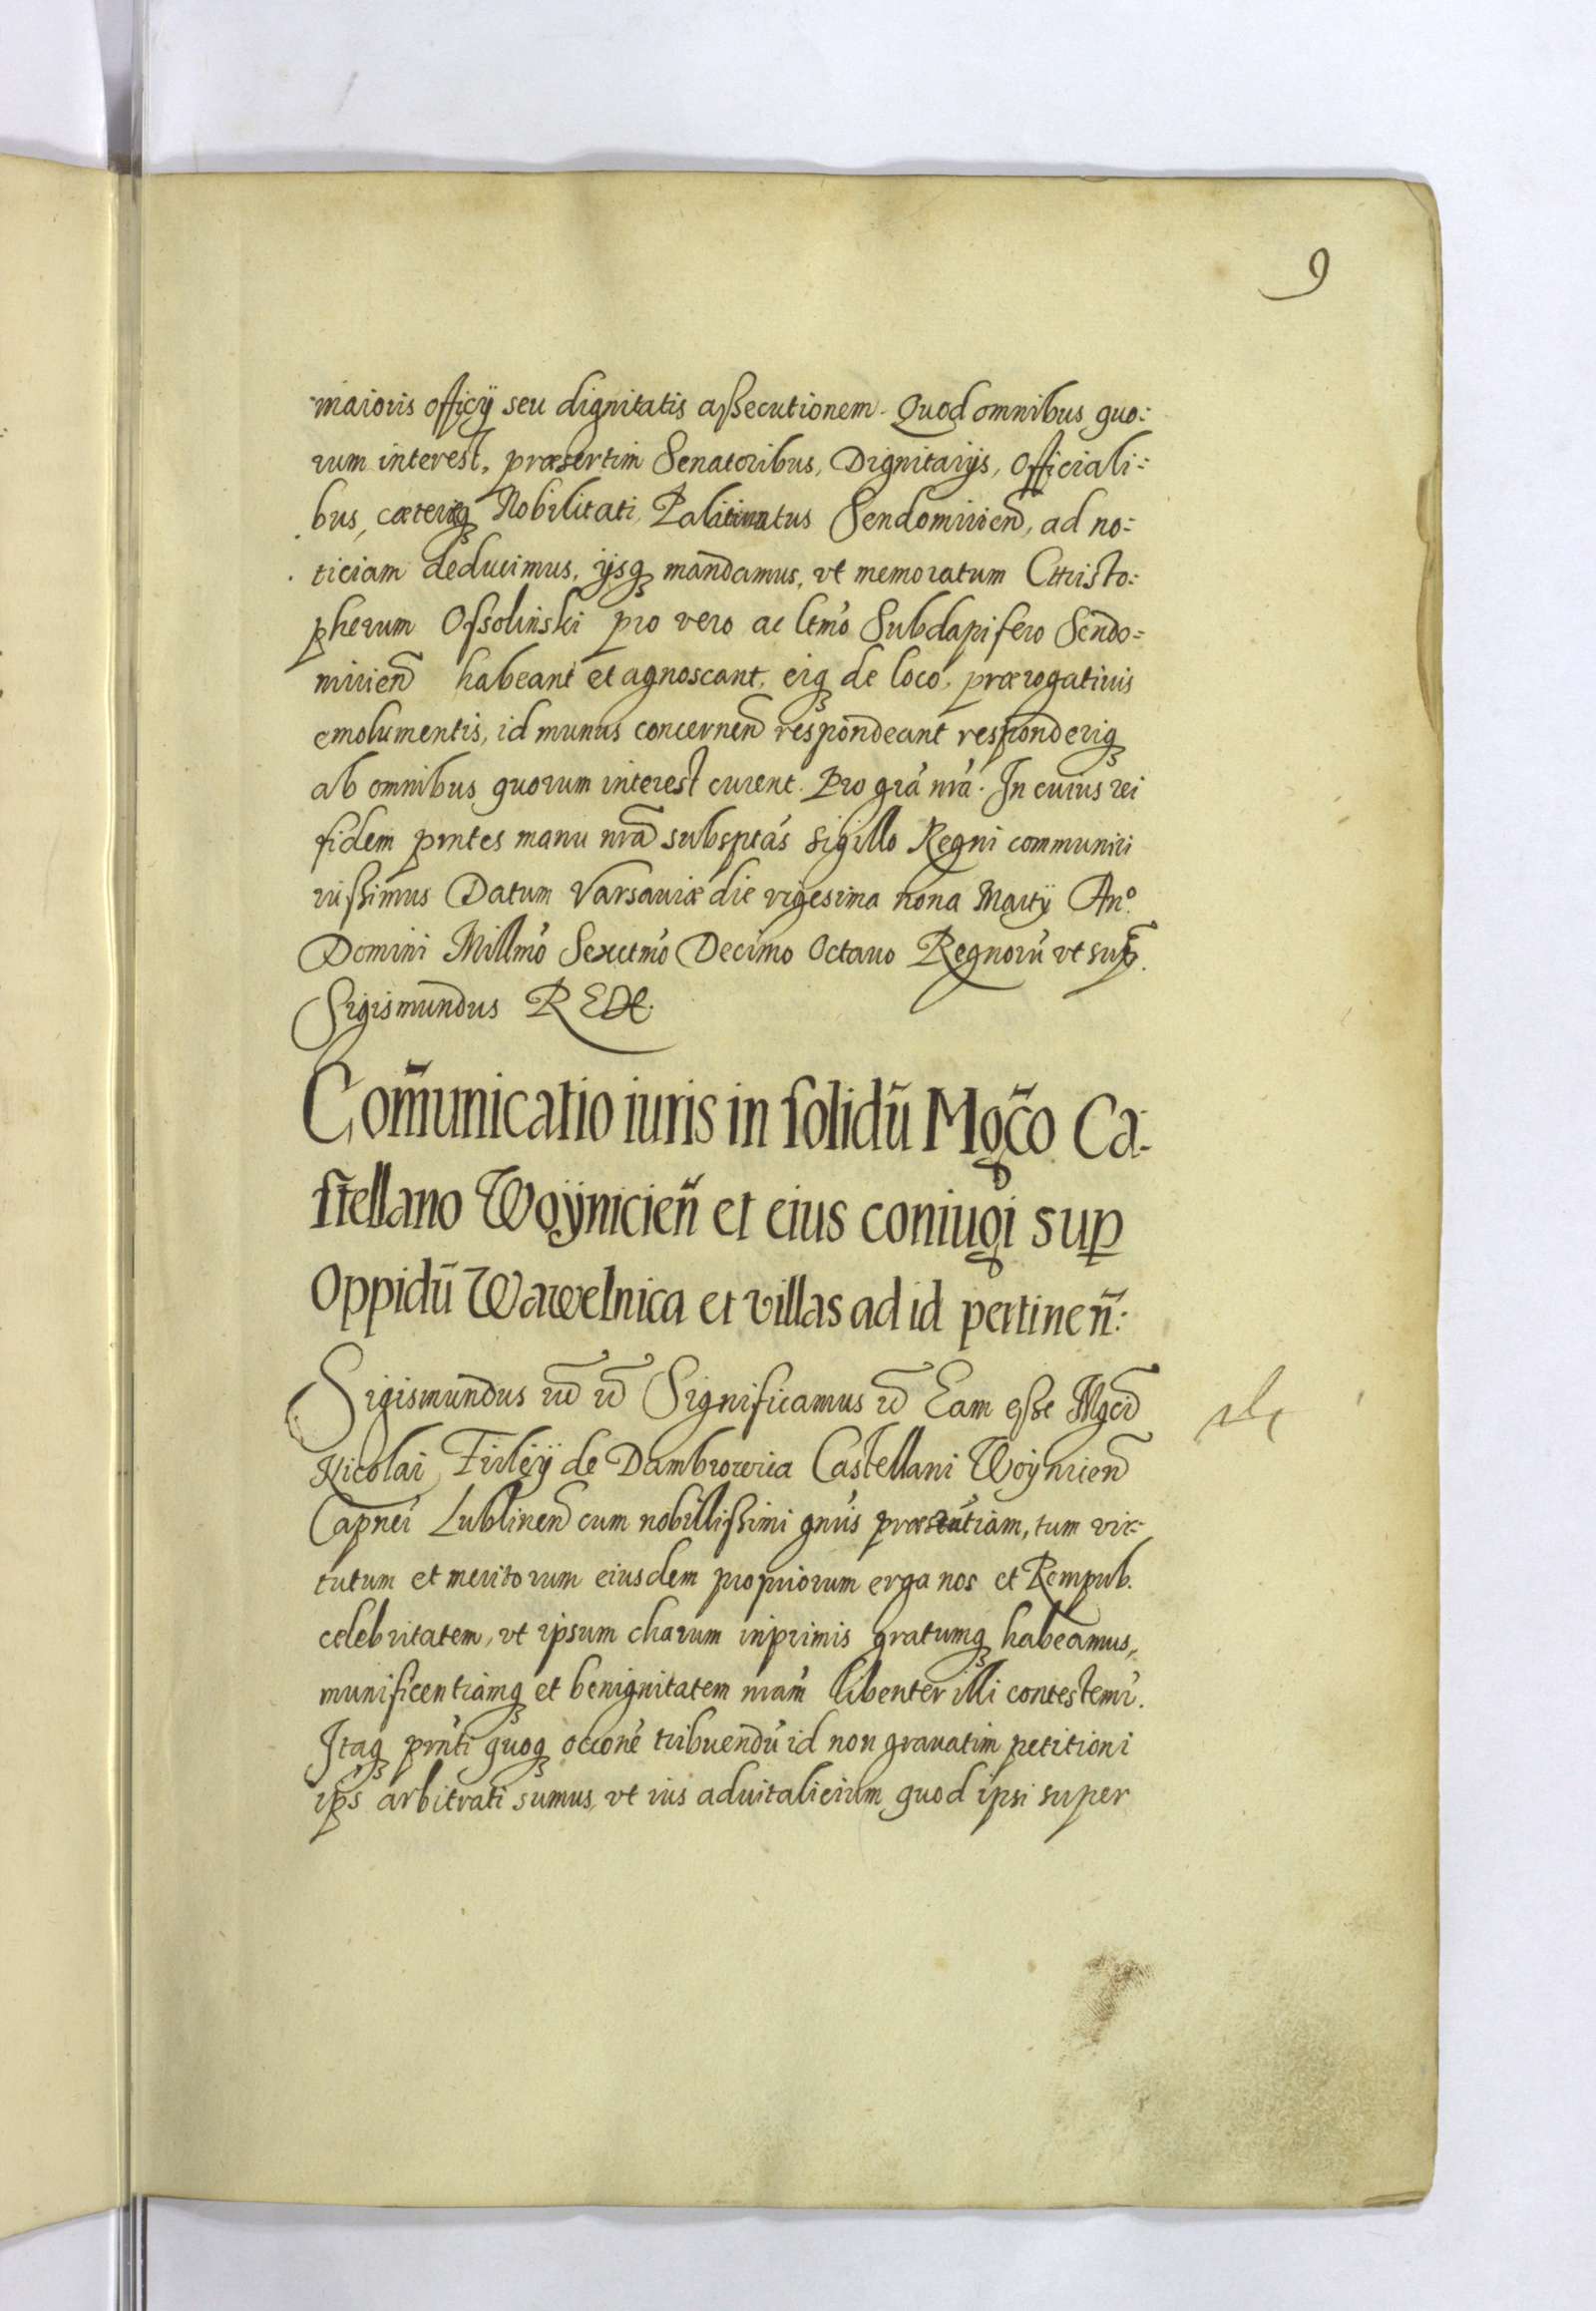 9
maioris officÿ seu dignitatis aßecutionem. Quod omnibus quo:
rum interest, præsertim Senatoribus, Dignitarijs, Officiali:
bus, cæteriq; Nobilitati, Palatinatus Sendomirien̄, ad no:
ticiam deducimus, ijsq; mandamus, vt memoratum Christo:
pherum Ossoliński pro vero ac ltmo Subdapifero Sendo=
mirien̄ habeant et agnoscant, eiq; de loco, prærogatiuis
emolumentis, id munus concernen̄ respondeant responderiq;
ab omnibus quorum interest curent. Pro gra nra. In cuius rei
fidem pnntes manu nra subsptas sigillo Regni communiri
iussimus Datum Varsauiæ die vigesima nona Martÿ Anº.
Domini Millmo Sexctmo Decimo Octauo Regnorū vt sup̄.
Sigismundus REX.
Com̄unicatio iuris in solidū Mgc̄o Ca-
stellano Woÿnicien̄ et eius coniugi sup
Oppidū Wawelnica et villas ad id pertinen̄:
Sigismundus etc̄ etc̄ Significamus etc̄ Eam eße Mgci
Nicolai Firleÿ de Dambrowica Castellani Woÿnicien̄
Capnei Lublinen̄ cum nobilißimi gnis præstātiam, tum vir=
tutum et meritorum eiusdem propriorum erga nos et Rempub.
celebritatem, vt ipsum charum inprimis gratumq; habeamus,
munificentiamq; et benignitatem nram libenter illi contestemr.
Itaq; prnti quoq; occone tribuendū id non grauatim petitioni
ips arbitrati sumus, vt ius aduitalicium quod ipsi super